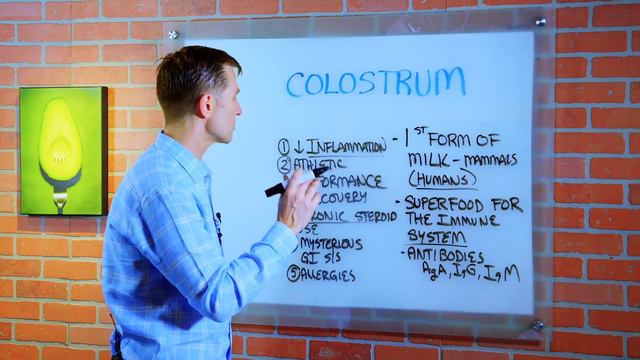 COLOSTRUM
① ↓ INFLAMMATION
② ATHLETIC
FORMANCE
COVERY
RONIC STEROID
SE
MYSTERIOUS
GI S/S
⑤ ALLERGIES
- 1ST FORM OF
MILK - MAMMALS
(HUMANS)
- SUPERFOOD FOR
THE IMMUNE
SYSTEM
- ANTIBODIES
AgA, IgG, IgM